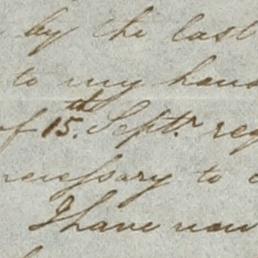 by the last
to my hand
of 15th. Septr. reg
necessary to
I have now